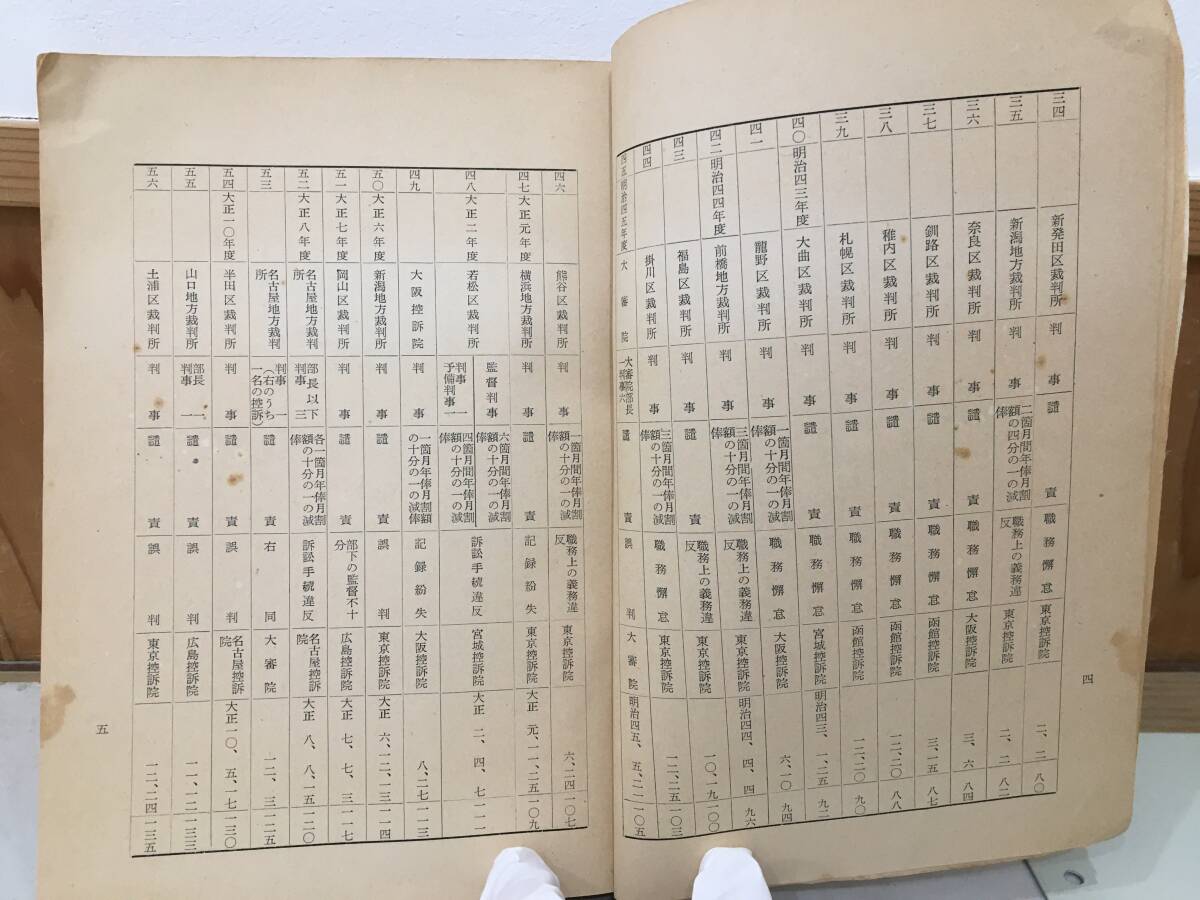 四
三四 新発田区裁判所 判事 譴責 職務懈怠 東京控訴院 二、二 八〇
三五 新潟地方裁判所 判事 二箇月間年俸月割額の四分の一の減俸 職務上の義務違反 東京控訴院 二、二 八二
三六 奈良区裁判所 判事 譴責 職務懈怠 大阪控訴院 三、六 八四
三七 釧路区裁判所 判事 譴責 職務懈怠 函館控訴院 三、一五 八七
三八 稚内区裁判所 判事 譴責 職務懈怠 函館控訴院 一二、二〇 八八
三九 札幌区裁判所 判事 譴責 職務懈怠 函館控訴院 一二、二〇 九〇
四〇 明治四三年度 大曲区裁判所 判事 譴責 職務懈怠 宮城控訴院 明治四三、一、二五 九二
四一 龍野区裁判所 判事 一箇月間年俸月割額の十分の一の減俸 職務懈怠 大阪控訴院 六、一〇 九四
四二 明治四四年度 前橋地方裁判所 判事 三箇月間年俸月割額の十分の一の減俸 職務上の義務違反 東京控訴院 明治四四、四、四 九六
四三 福島区裁判所 判事 譴責 職務上の義務違反 東京控訴院 一〇、一九 一〇〇
四四 掛川区裁判所 判事 三箇月間年俸月割額の十分の一の減俸 職務懈怠 東京控訴院 一二、二五 一〇三
四五 明治四五年度 大審院 大審院部長一 判事六 譴責 誤判 大審院 明治四五、五、二一 一〇五
四六 熊谷区裁判所 判事 一箇月間年俸月割額の十分の一の減俸 職務上の義務違反 東京控訴院 六、二四 一〇七
四七 大正元年度 横浜地方裁判所 判事 譴責 記録紛失 東京控訴院 大正元、一一、二五 一〇九
四八 大正二年度 若松区裁判所 監督判事 六箇月間年俸月割額の十分の一の減俸 判事一 予備判事一 四箇月間年俸月割額の十分の一の減俸 訴訟手続違反 宮城控訴院 大正二、四、七 一一一
四九 大阪控訴院 判事 一箇月年俸月割額の十分の一の減俸 記録紛失 大阪控訴院 八、二七 一一三
五〇 大正六年度 新潟地方裁判所 判事 譴責 誤判 東京控訴院 大正六、一二、一三 一一四
五一 大正七年度 岡山区裁判所 判事 譴責 部下の監督不十分 広島控訴院 大正七、七、三 一一七
五二 大正八年度 名古屋地方裁判所 部長以下判事三 各一箇月年俸月割額の十分の一の減俸 訴訟手続違反 名古屋控訴院 大正八、八、一五 一二〇
五三 名古屋地方裁判所 判事一（右のうち一名の控訴） 譴責 右同 大審院 一二、三 一二五
五四 大正一〇年度 半田区裁判所 判事 譴責 誤判 名古屋控訴院 大正一〇、五、一七 一三〇
五五 山口地方裁判所 部長一 判事一 譴責 誤判 広島控訴院 一一、一二 一三三
五六 土浦区裁判所 判事 譴責 誤判 東京控訴院 一二、二四 一三五
五